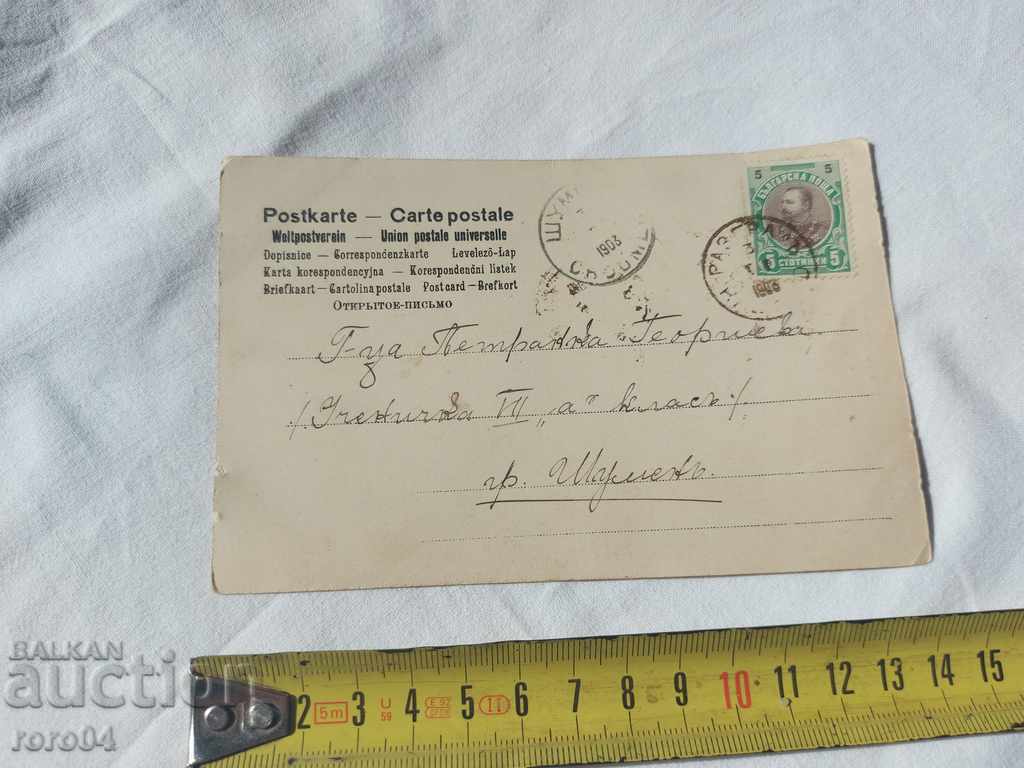 Postkarte — Carte postale
Weltpostverein — Union postale universelle
Dopisnice — Correspondenzkarte Levelező-Lap
Karta korespondencyjna — Korespondenční listek
Briefkaart — Cartolina postale Post card — Brefkort
ОТКРЫТОЕ-ПИСЬМО
1903
5 5
БЪЛГАРСКА ПОЩА
5 СТОТИНКИ 5
РАЗГРАДЪ
1903
Г-ца Петранка Георгиева
/Ученичка VII „а" класъ/
гр. Шуменъ
BALKAN
auction
roro04
2 5m 3 U 59 4 5 II 6 7 8 9 10 11 12 13 14 15